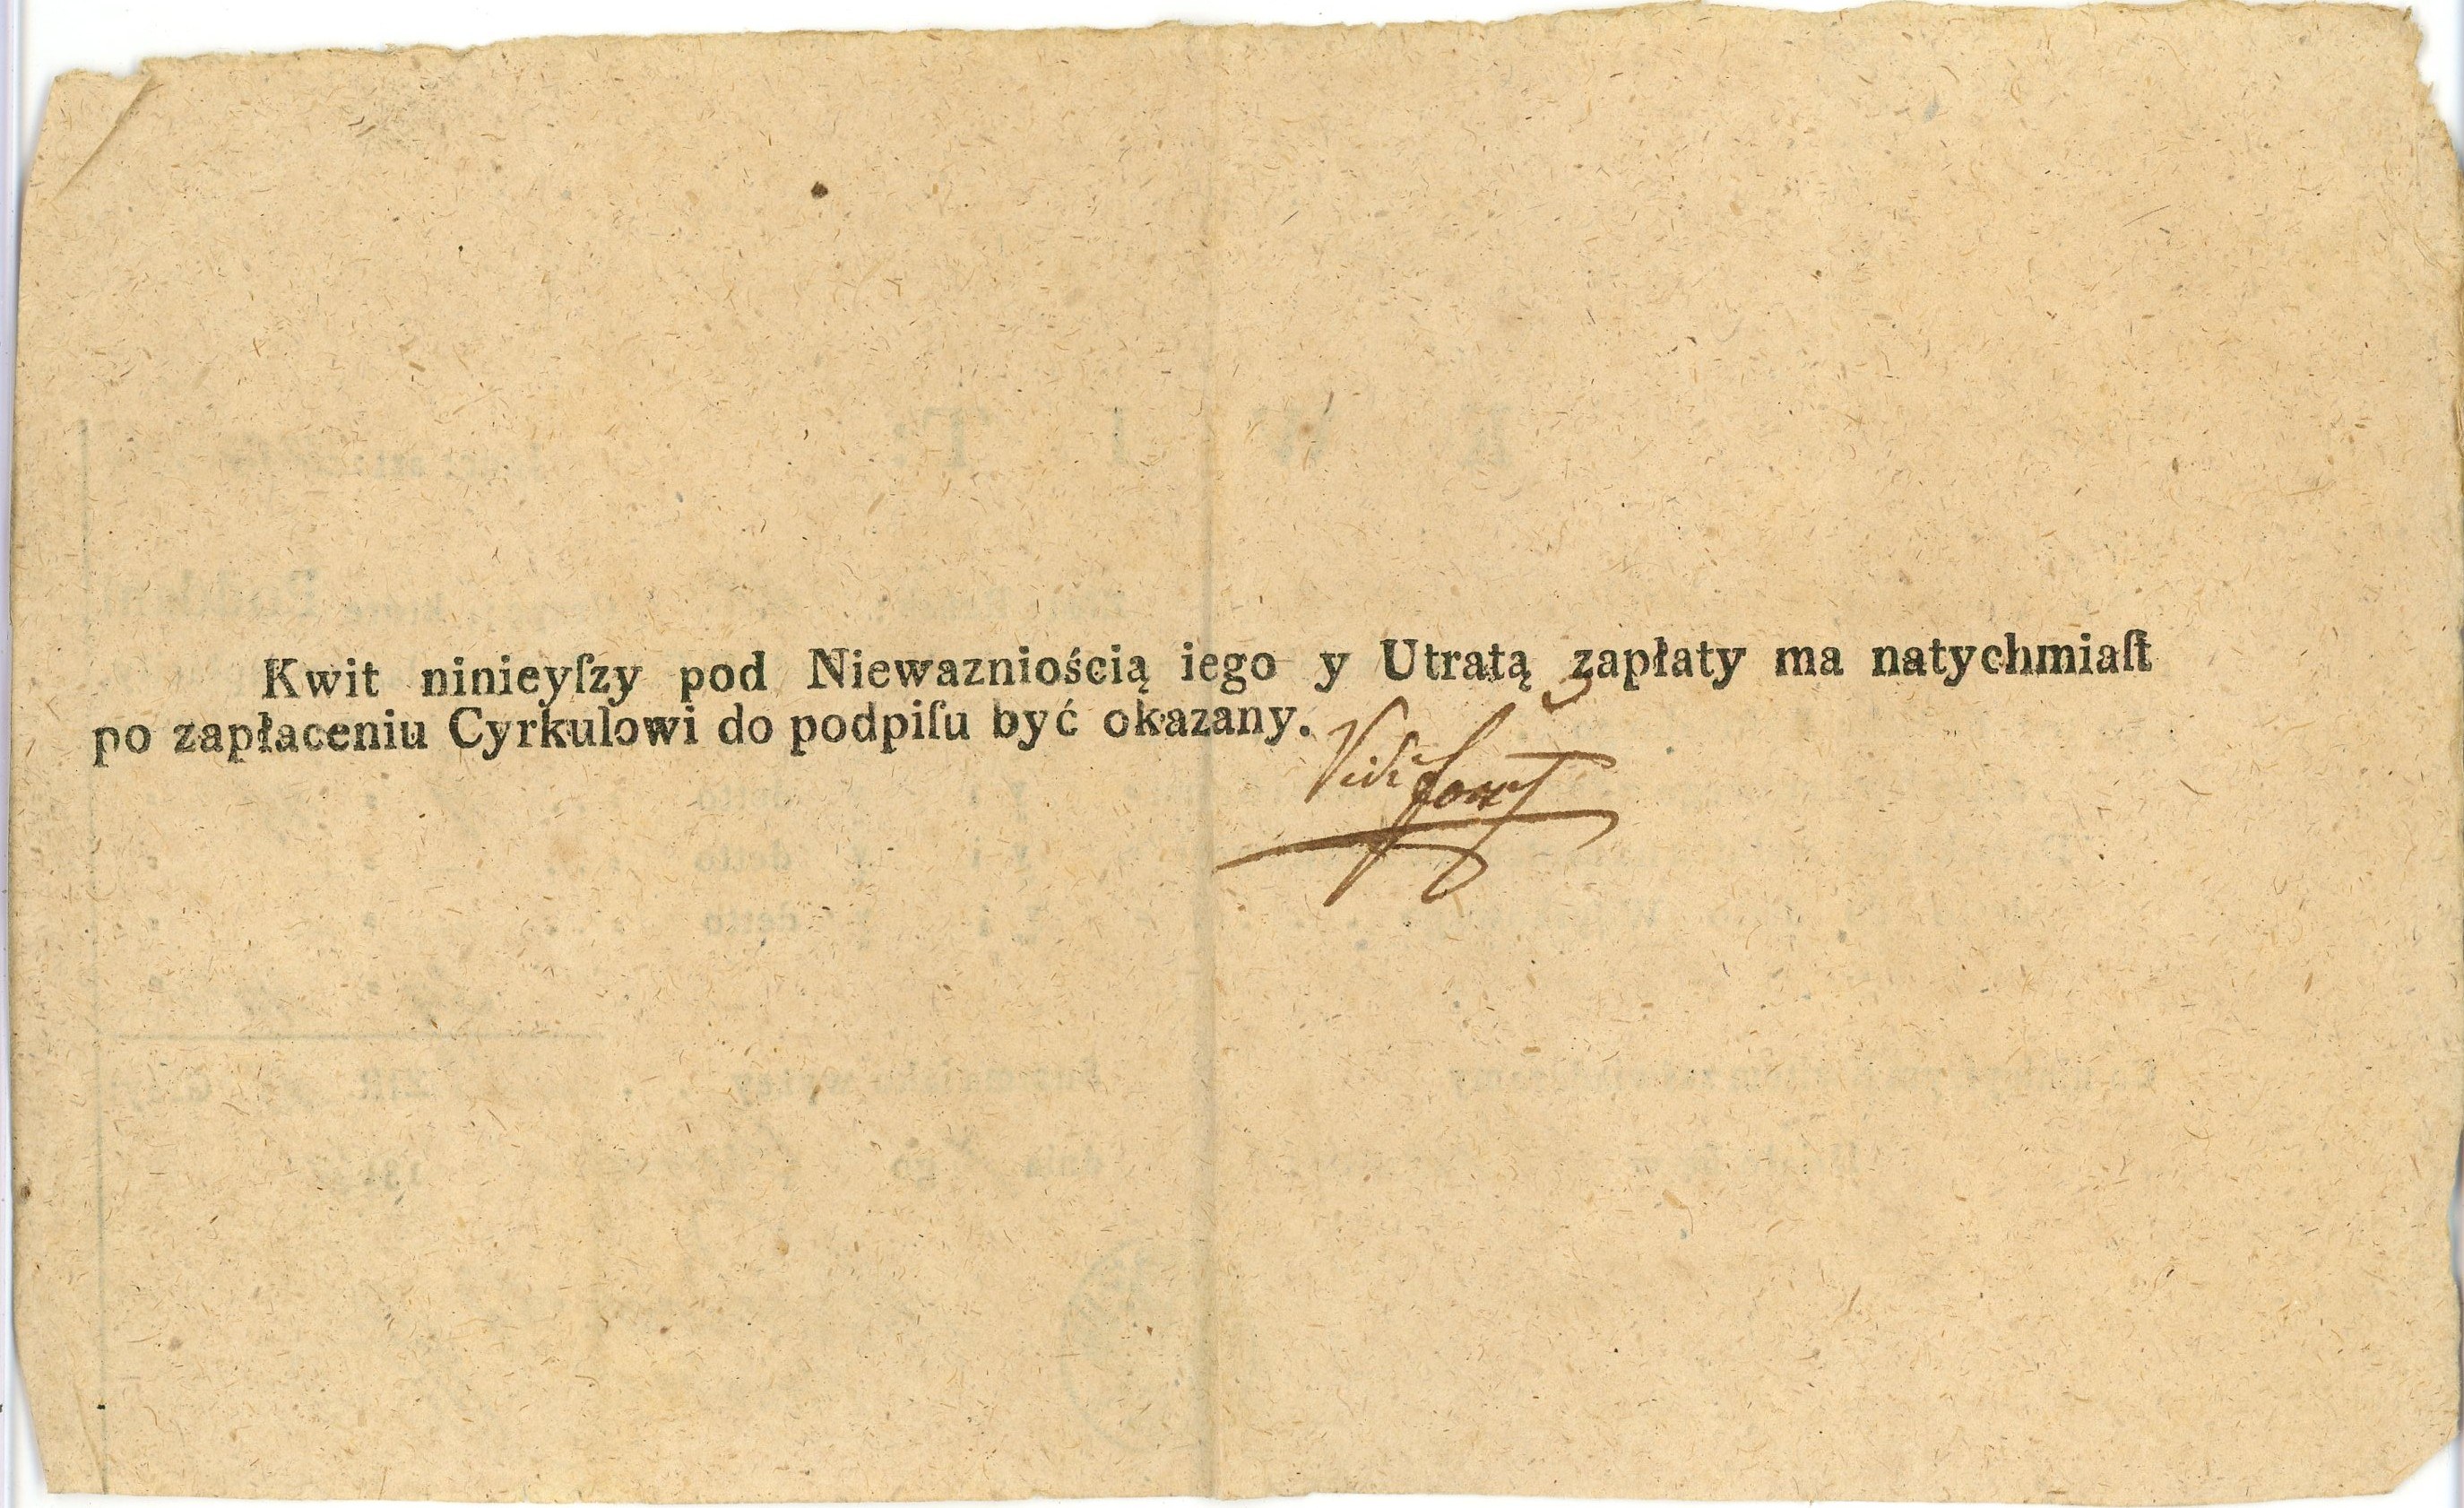 Kwit ninieyſzy pod Niewazniością iego y Utratą zapłaty ma natychmiaſt
po zapłaceniu Cyrkulowi do podpiſu być okazany.
Vidi